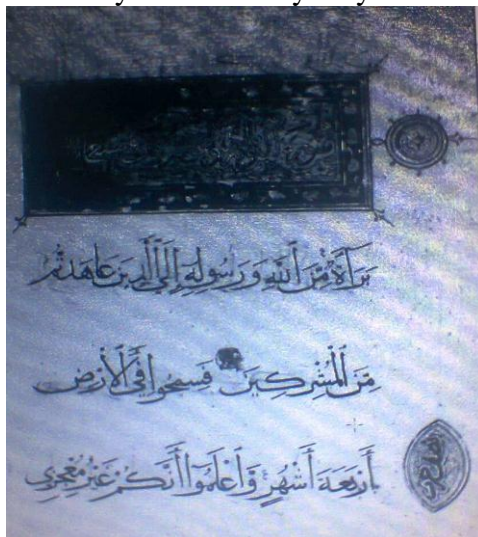 بَرَآءَةٌ مِّنَ ٱللَّهِ وَرَسُولِهِ إِلَى ٱلَّذِينَ عَاهَدتُّمْ
مِّنَ ٱلْمُشْرِكِينَ فَسِيحُوا فِي ٱلْأَرْضِ
أَرْبَعَةَ أَشْهُرٍ وَٱعْلَمُوٓا أَنَّكُمْ غَيْرُ مُعْجِزِي